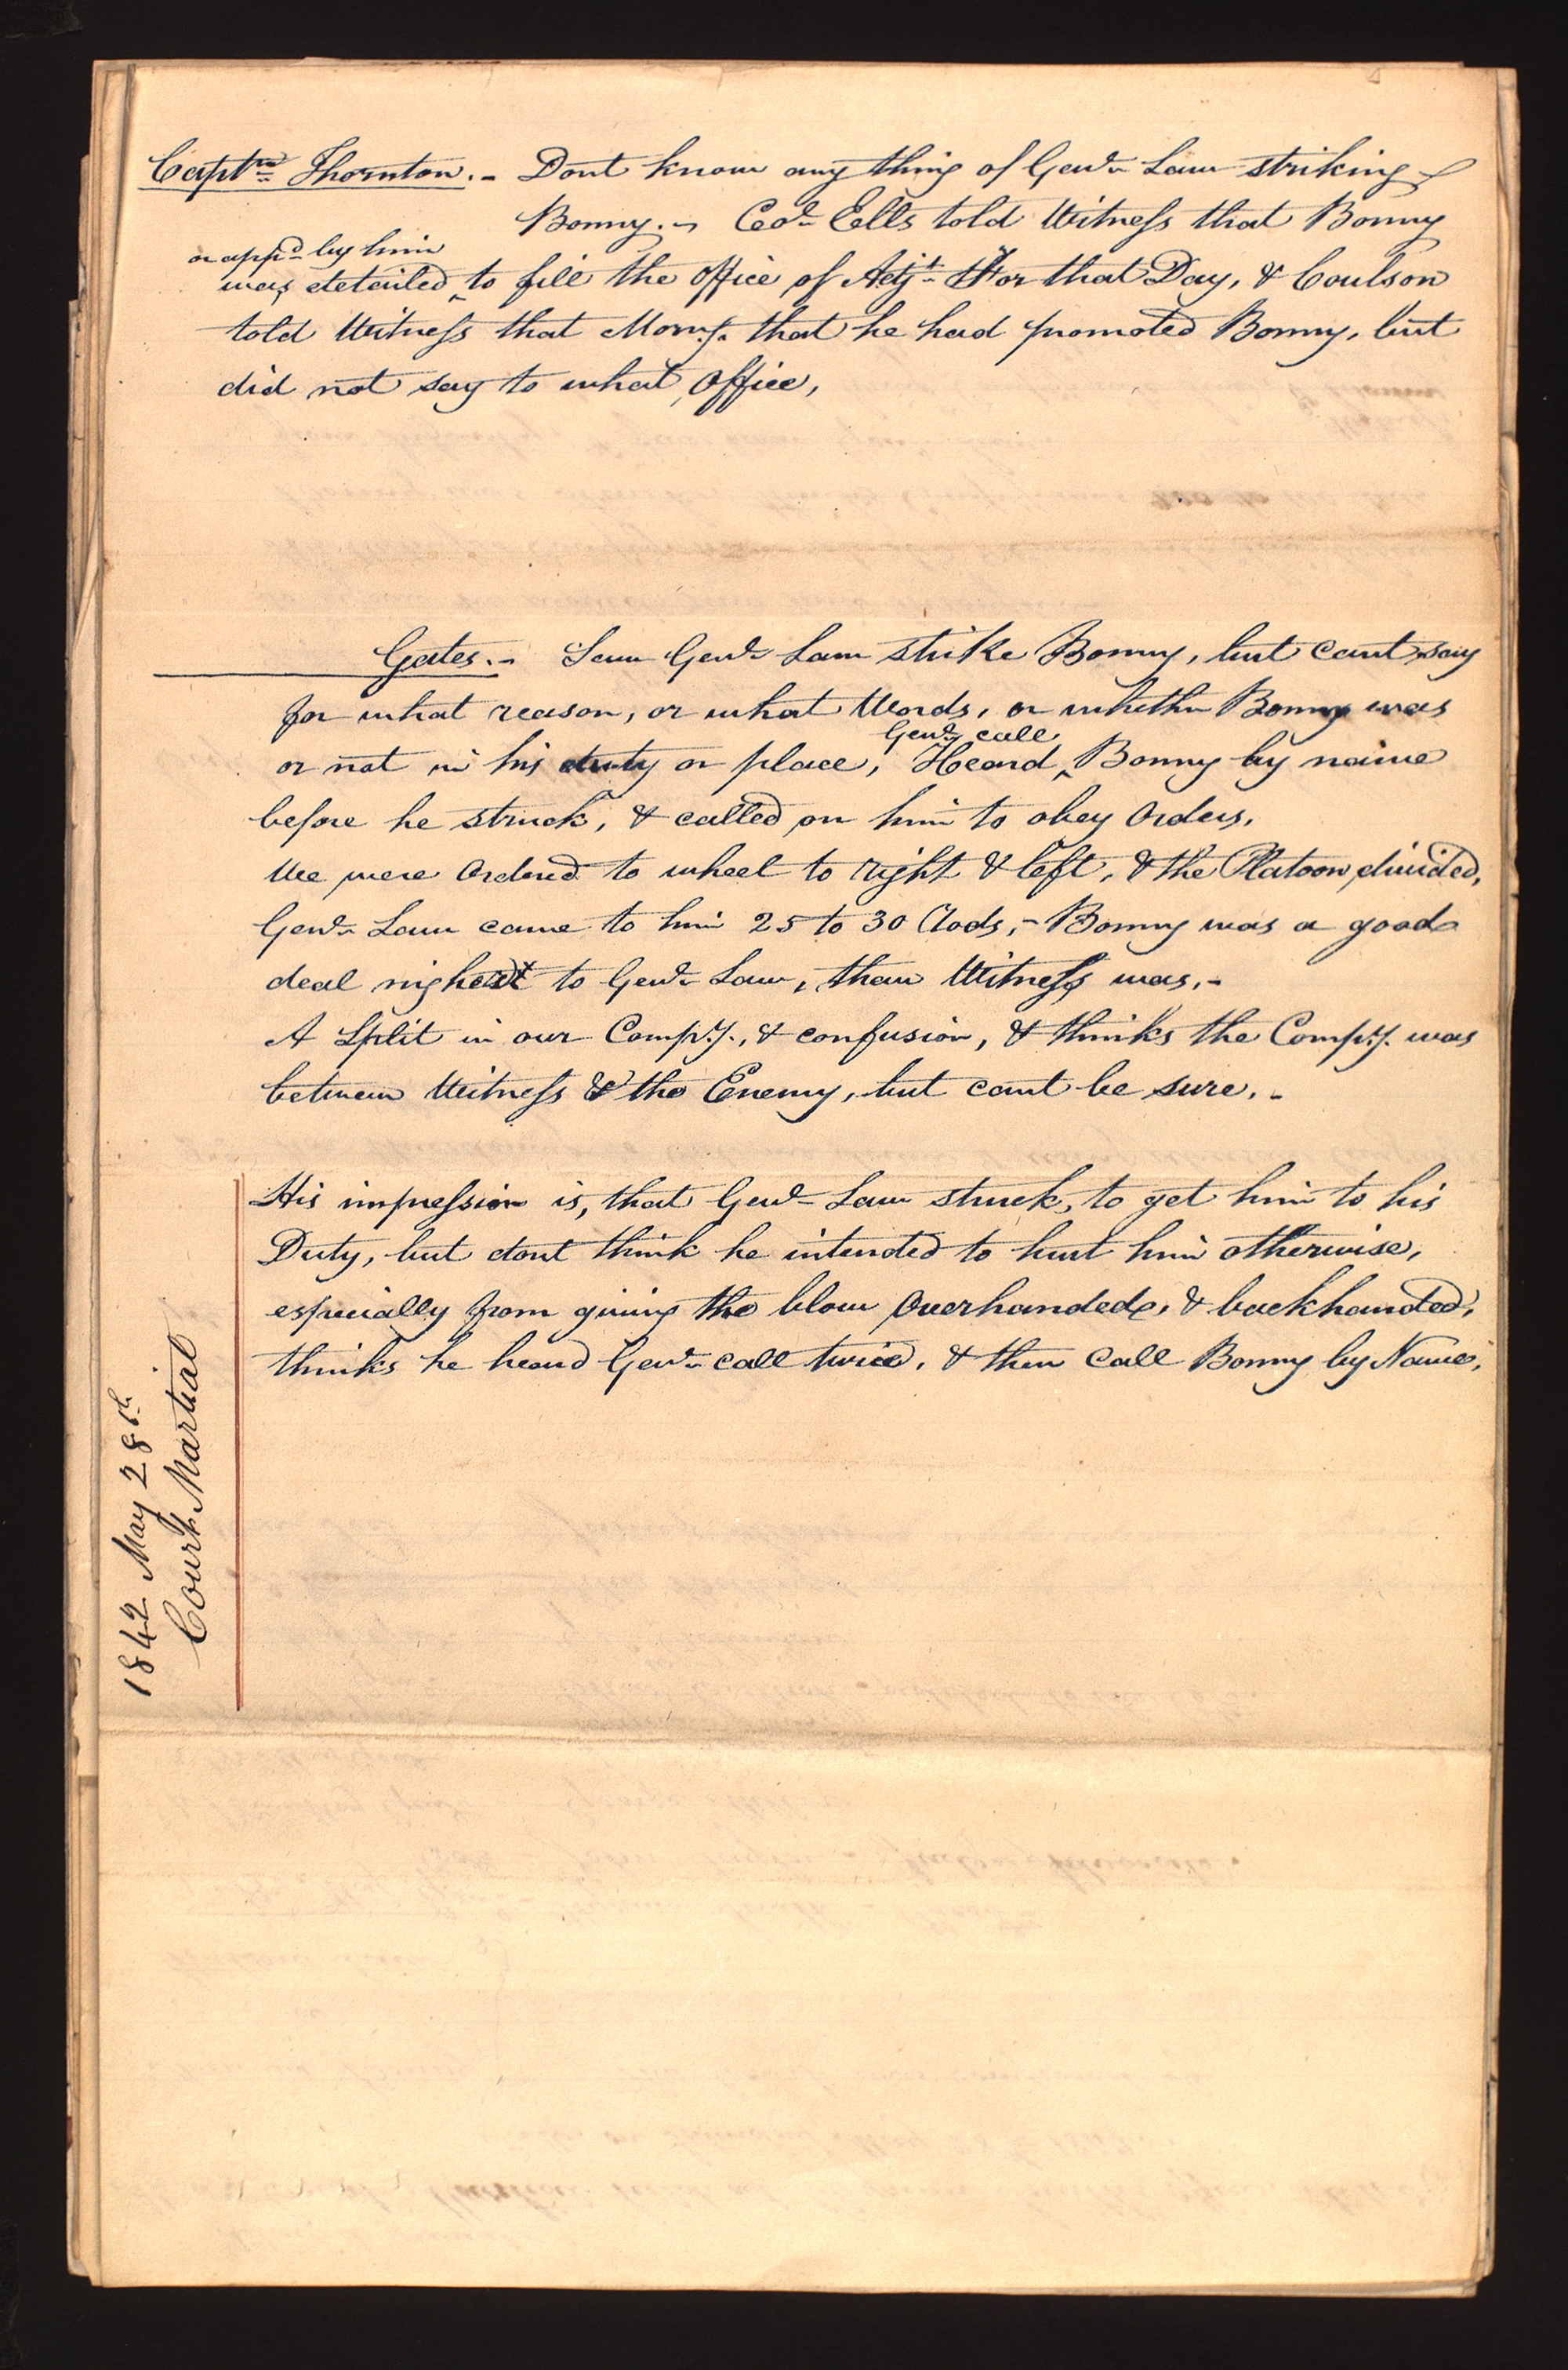 Captn Thornton. - Dont know any thing of Genl Law striking
Bonny. - Col Ells told Witness that Bonny
or appd by him
was detailed ‸ to fill the Office of Adjt for that Day, & Coulson
told Witness that Morng. that he had promoted Bonny, but
did not say to what Office,
Gates. - Saw Genl Law strike Bonny, but cant say
for what reason, or what Words, or whether Bonny was
Genl call
or not in his duty or place, Heard ‸ Bonny by name
before he struck, & called on him to obey Orders.
We were Ordered to wheel to right & left, & the Platoon divided,
Genl Law came to him 25 to 30 Rods, - Bonny was a good
deal nigher to Genl Law, than Witness was. -
A Split in our Compy., & confusion, & thinks the Compy. was
between Witness & the Enemy, but cant be sure. -
His impression is, that Genl Law struck, to get him to his
Duty, but dont think he intended to hurt him otherwise,
especially from giving the blow Overhanded, & backhanded,
thinks he heard Genl call twice, & then call Bonny by Name.
1842 May 28th
Court Martial